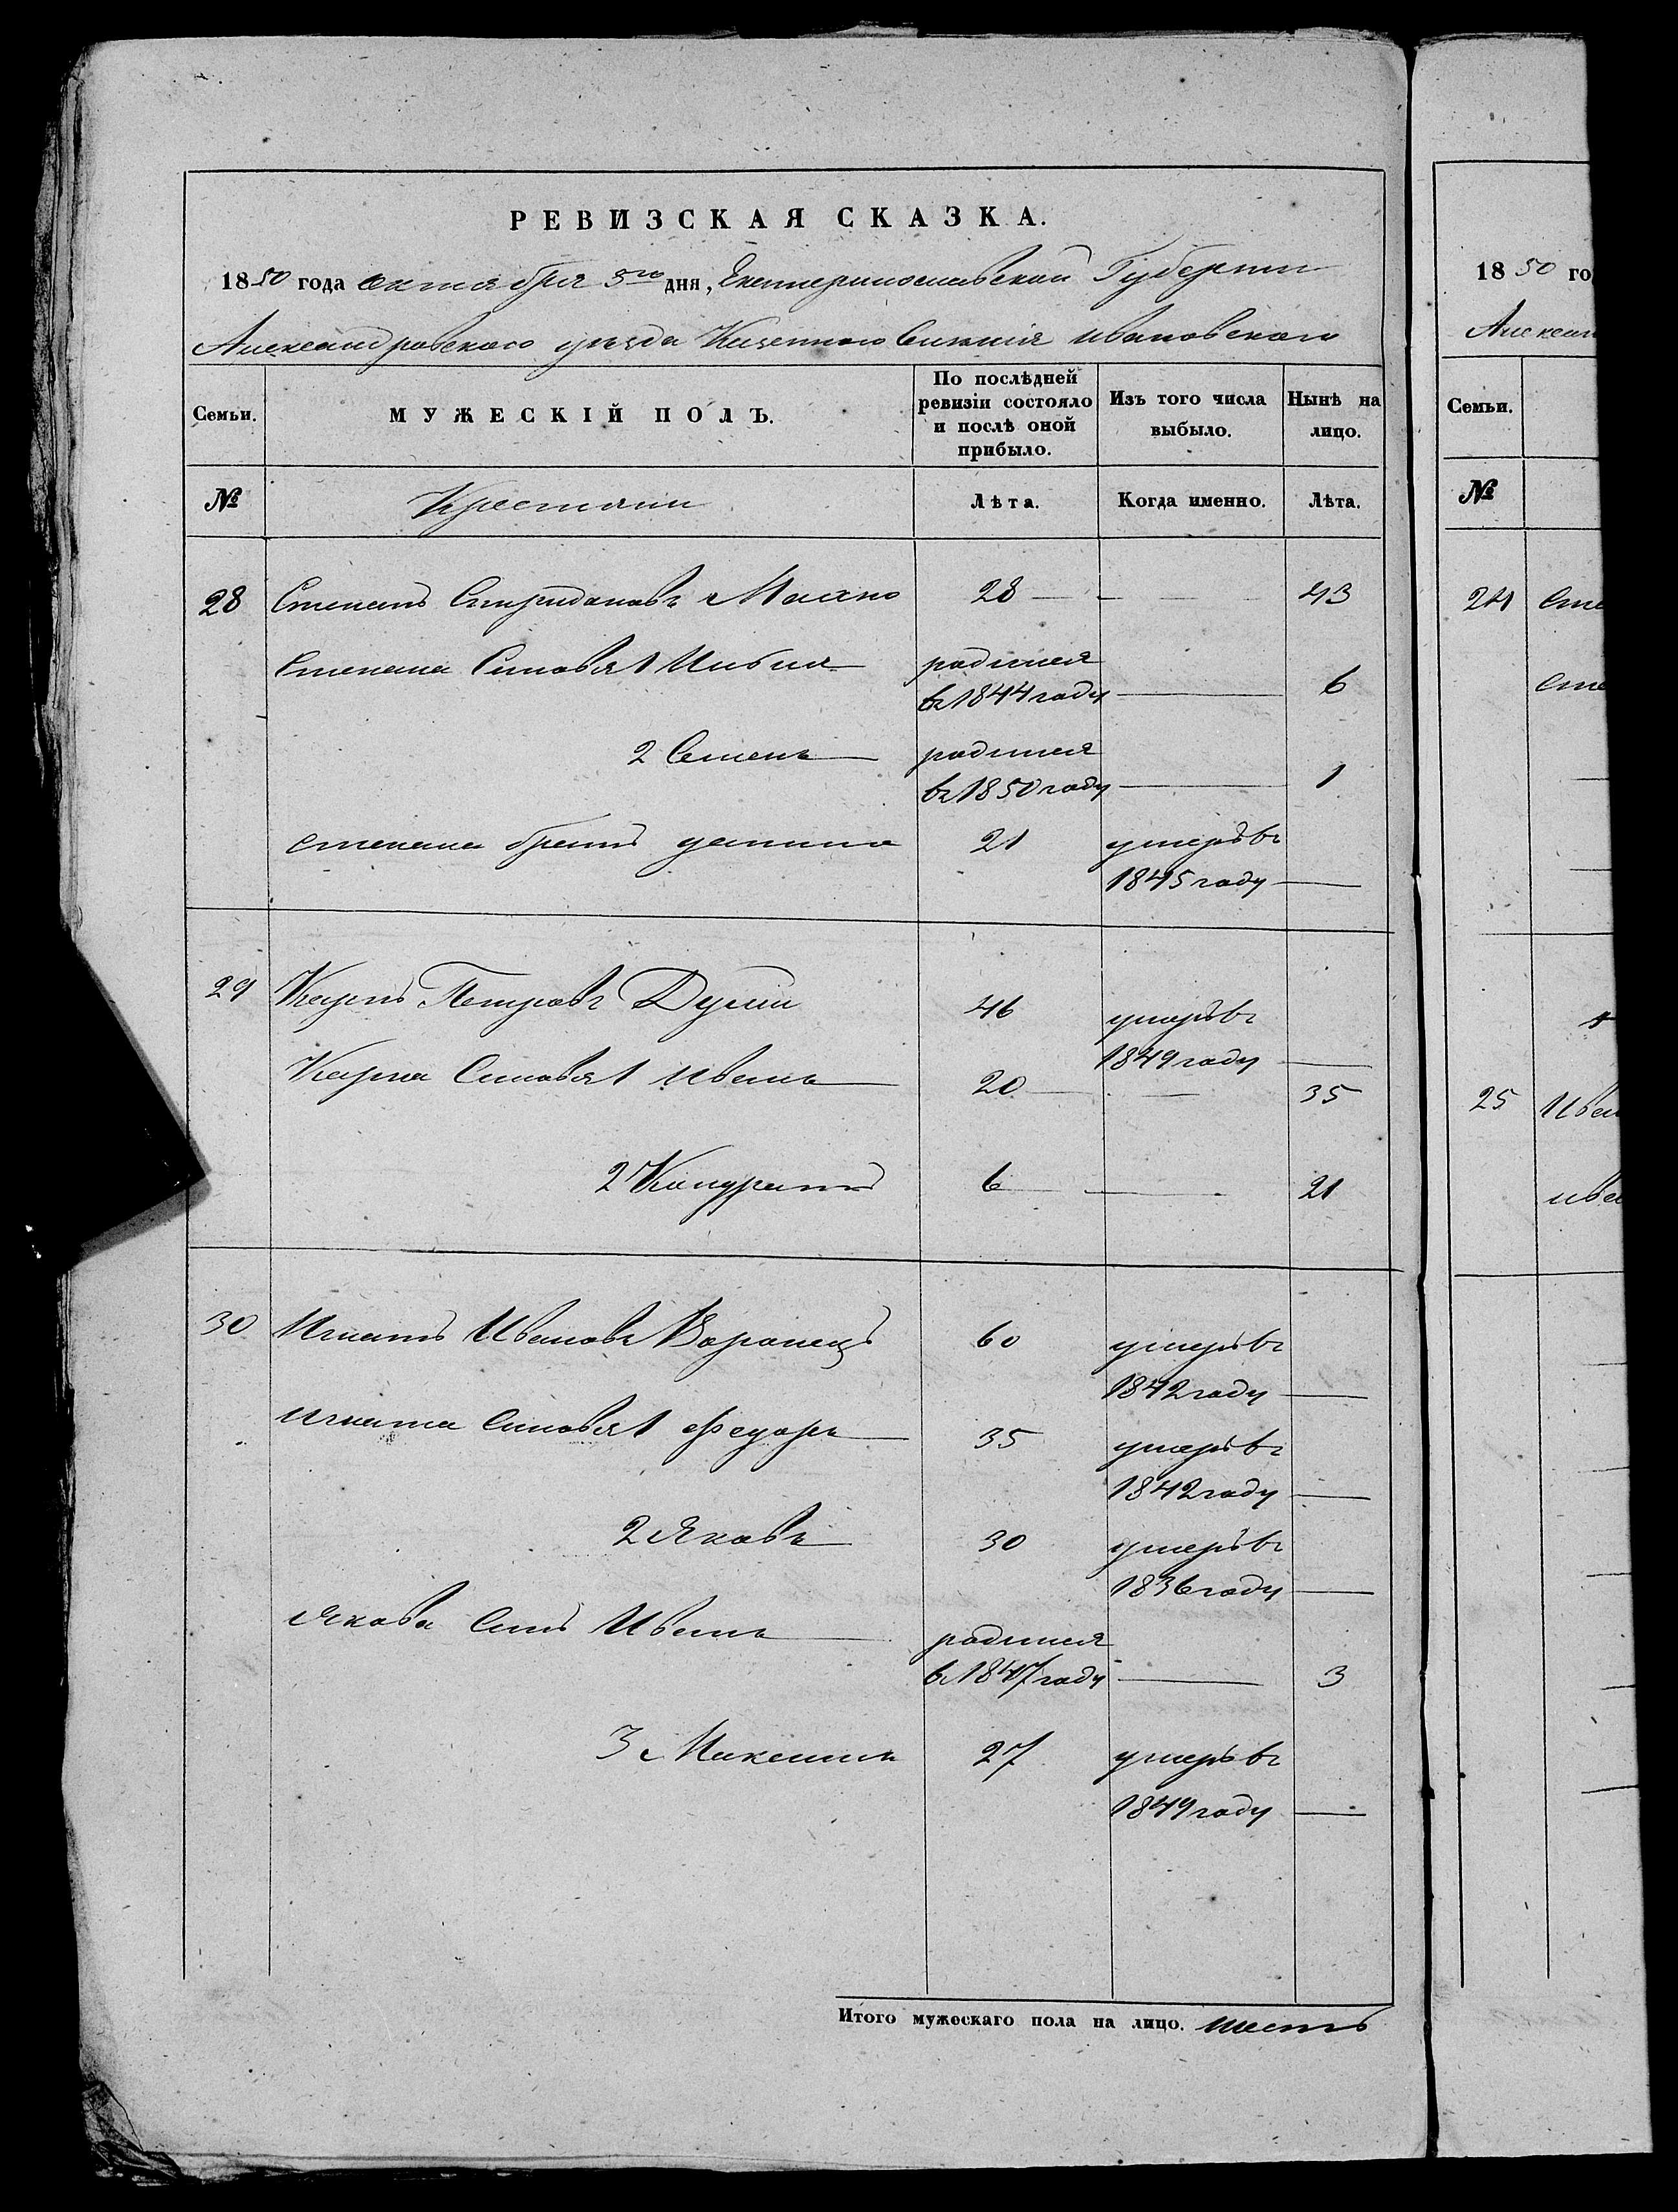 РЕВИЗСКАЯ СКАЗКА.
1850 года октября 3го дня, Екатеринославской Губернии
Александровского уезда Казенного Селения Ивановского
Семьи. МУЖЕСКІЙ ПОЛЪ. По послѣдней ревизіи состояло и послѣ оной прибыло. Изъ того числа выбыло. Нынѣ на лицо.
№ Крестяни Лѣта. Когда именно. Лѣта.
28 Степанъ Спиридоновъ Махно 28 — — 43
Степана Синовя 1 Илья родился
въ 1844 году — 6
2 Семенъ — родился
въ 1850 году — 1
степана братъ данило 21 умеръ въ
1845 году —
29 Карпъ Петровъ 46 умеръ въ
1849 году —
Карпа Синовя 1 Иванъ — 20 — — 35
2 Кондратъ 6 — — 21
30 Игнатъ Ивановъ Воронецъ 60 умеръ въ
1842 году —
игната Синовя 1 Федоръ — 35 умеръ въ
1842 году —
2 Яковъ — 30 умеръ въ
1836 году —
Якова Синъ Иванъ — родился
въ 1847 году — 3
3 Максимъ 27 умеръ въ
1849 году —
Итого мужескаго пола на лицо. шесть
1850 го
Алексан
Семьи.
№
24 Сте
Сте
25 Иван
ива